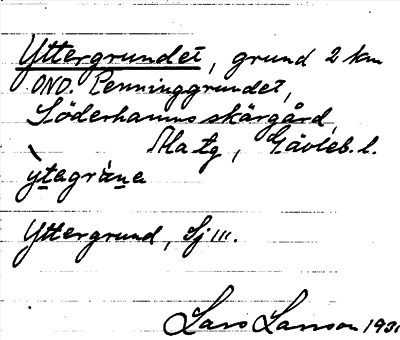 Yttergrundet, grund 2 km
OND. Penninggrundet,
Söderhamns skärgård,
Ma tg, Gävleb. l.
ỳtagrὰne
Yttergrund, Sj III.
Lars Larsson 193